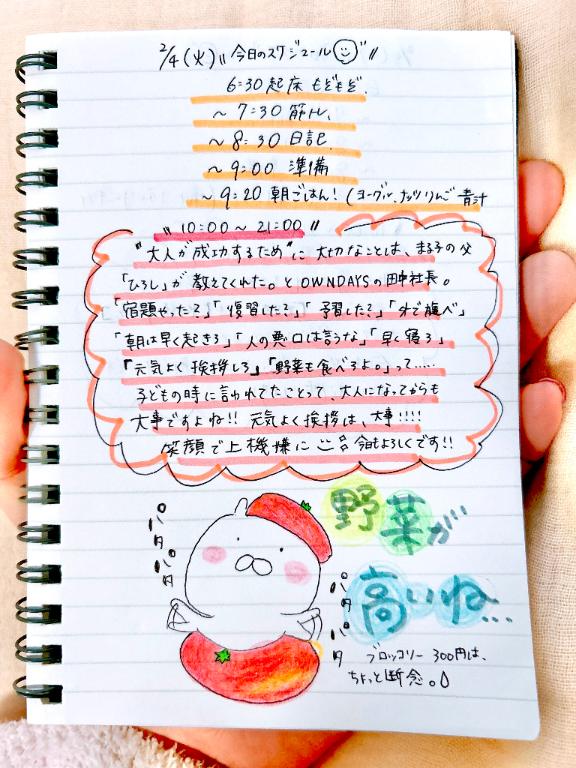 2/4(火)"今日のスケジュール"
6:30 起床 もぞもぞ.
~7:30 筋トレ.
~8:30 日記.
~9:00 準備
~9:20 朝ごはん!(ヨーグル、ナッツ りんご 青汁
"10:00~21:00"
"大人が成功するため"に大切なことは、まる子の父
「ひろし」が教えてくれた。とOWNDAYSの田中社長。
「宿題やった?」「復習した?」「予習した?」「外で遊べ」
「朝は早く起きろ」「人の悪口は言うな」「早く寝ろ」
「元気よく挨拶しろ」「野菜も食べろよ。」って.....
子どもの時に言われてたことって、大人になってからも
大事ですよね!! 元気よく挨拶は、大事!!!!
笑顔で上機嫌に 今日もよろしくです!!
野菜が…
高いね…
パタパタ
パタパタ
ブロッコリー 300円は、
ちょっと断念。